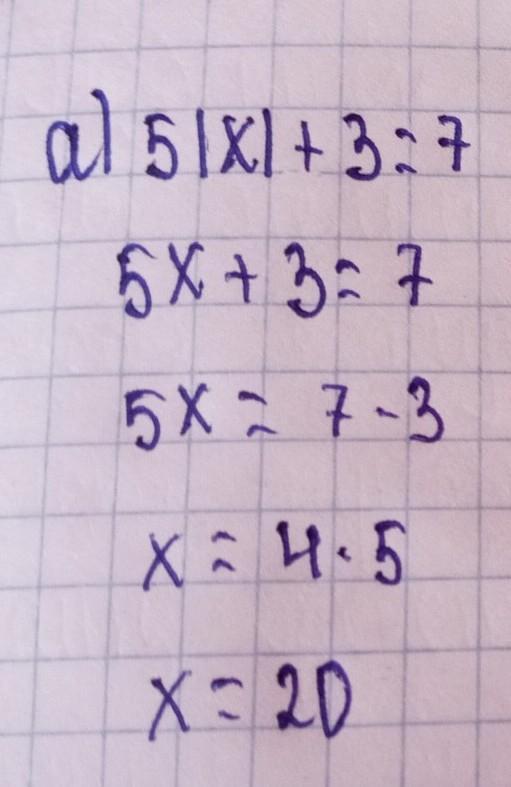 а) 5|x| + 3 = 7
5x + 3 = 7
5x = 7 - 3
x = 4 · 5
x = 20